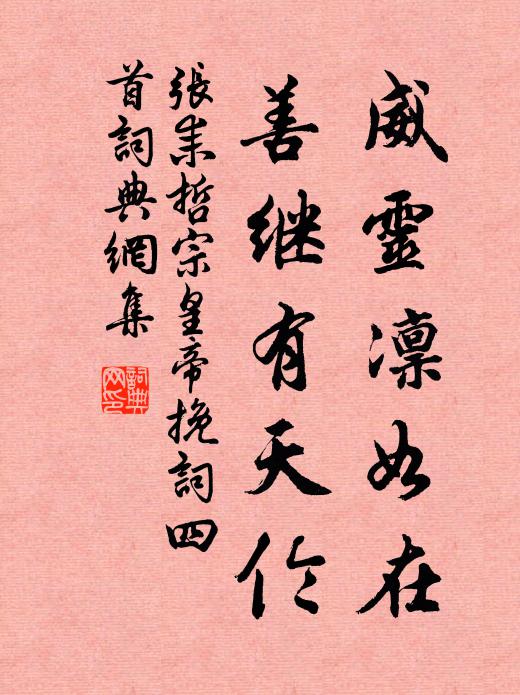 威靈凛如在
善继有天伦
張耒哲宗皇帝挽詞四
首詞典網集
詞典网印